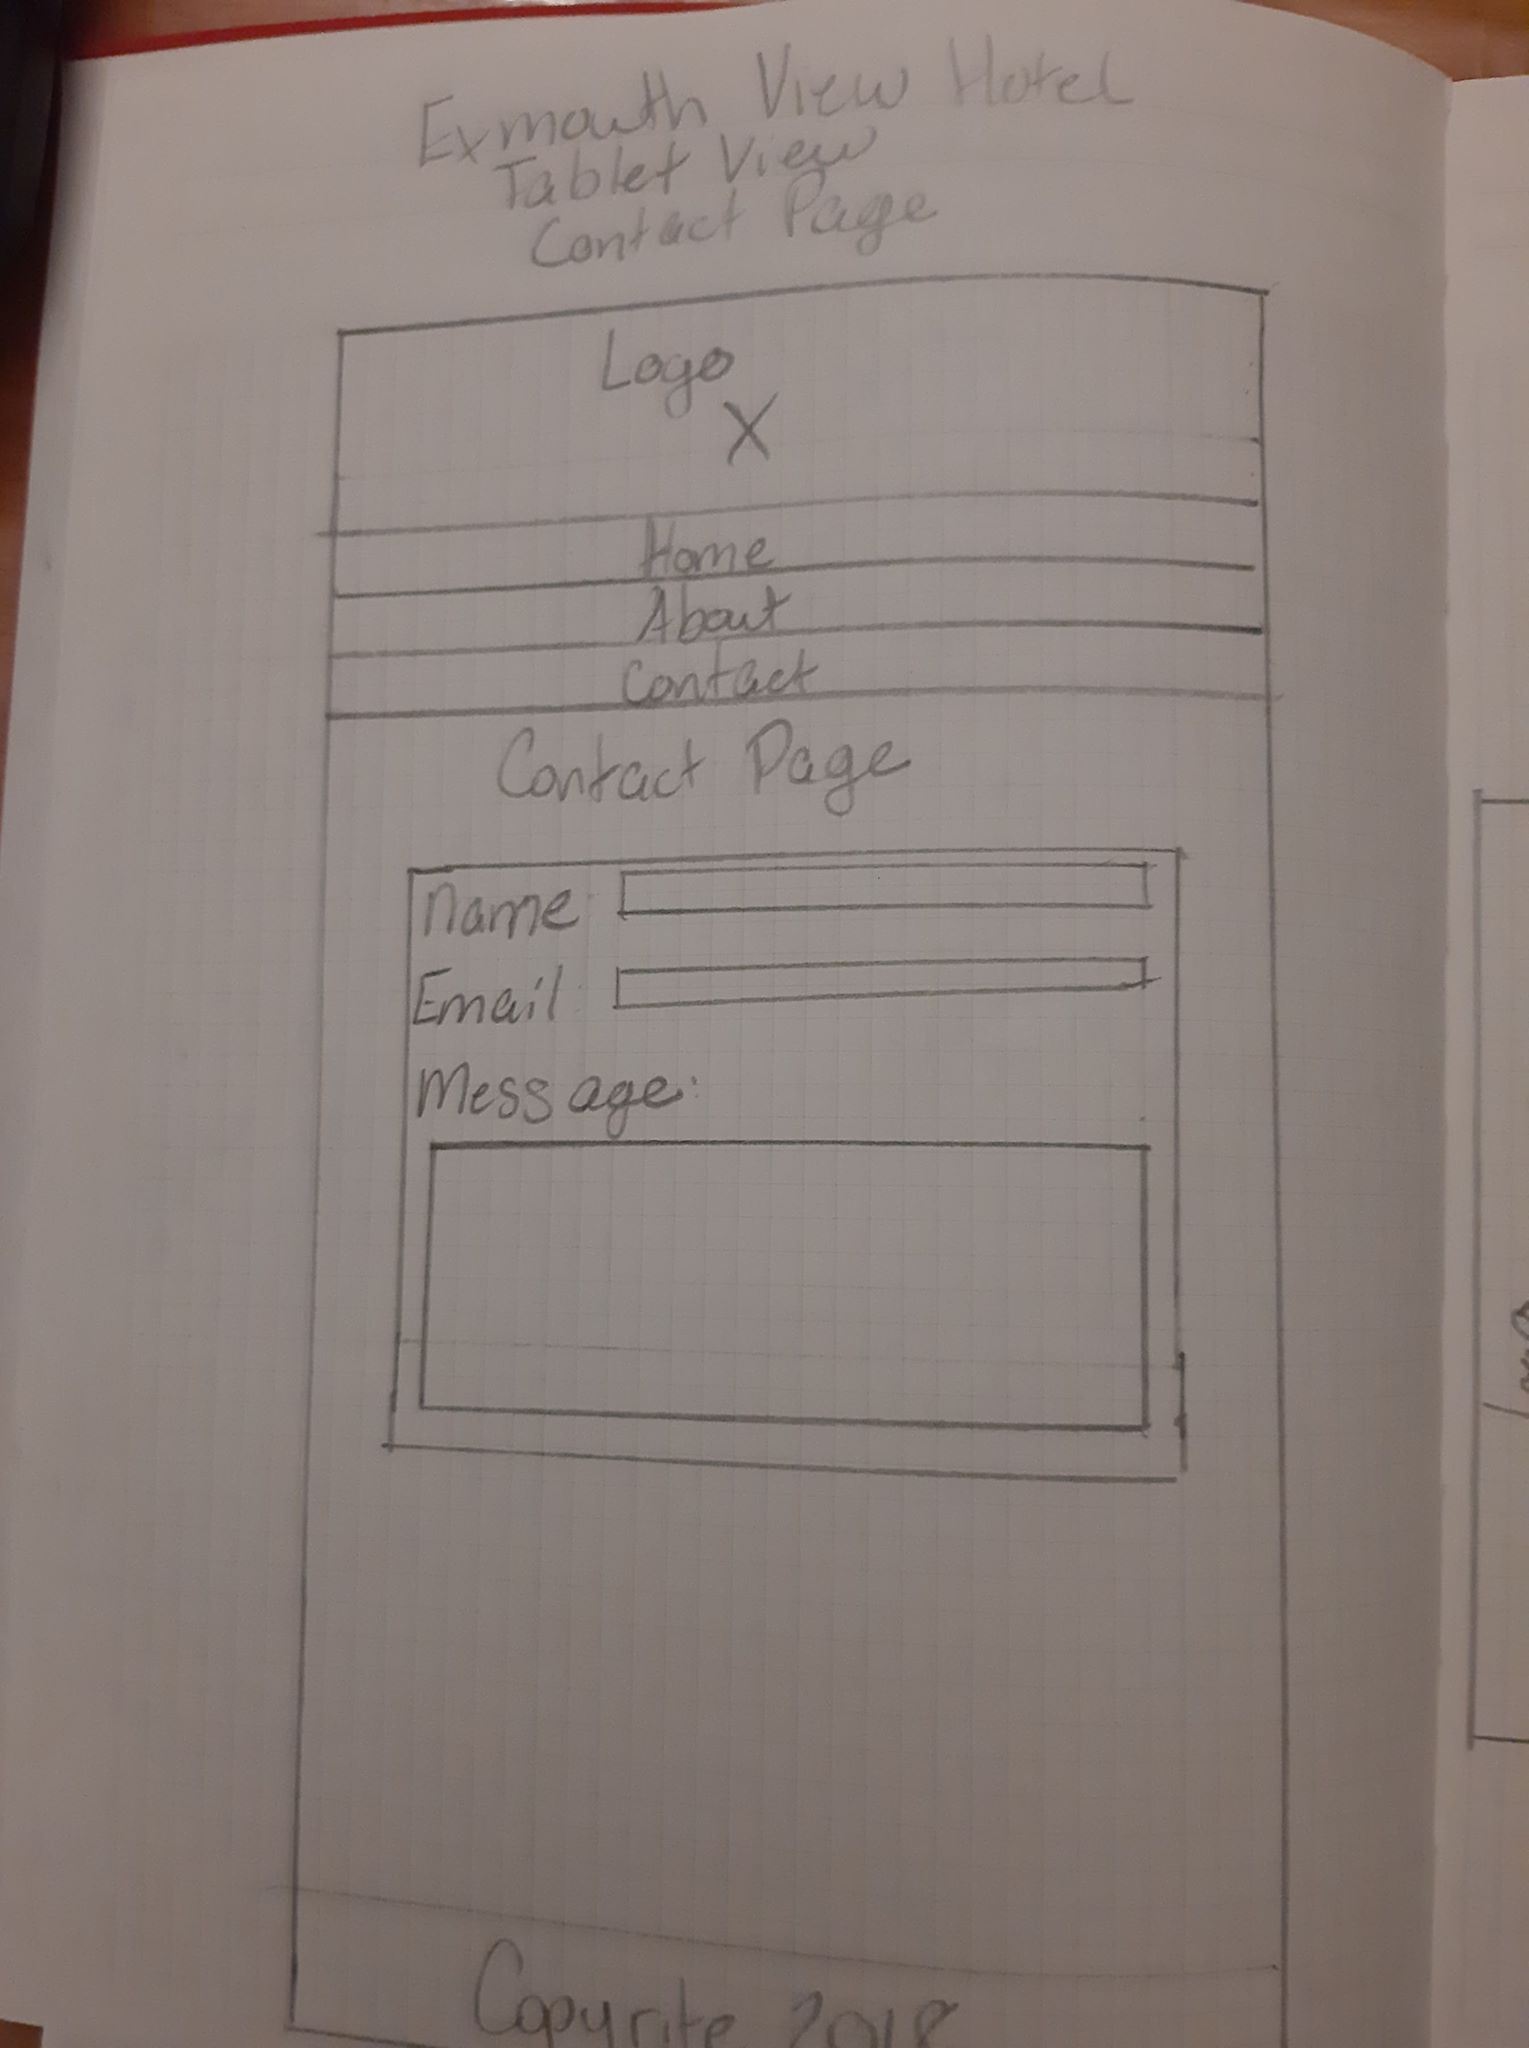 Exmouth View Hotel
Tablet View
Contact Page
Logo
X
Home
About
Contact
Contact Page
Name:
Email:
Message:
Copyrite 2018